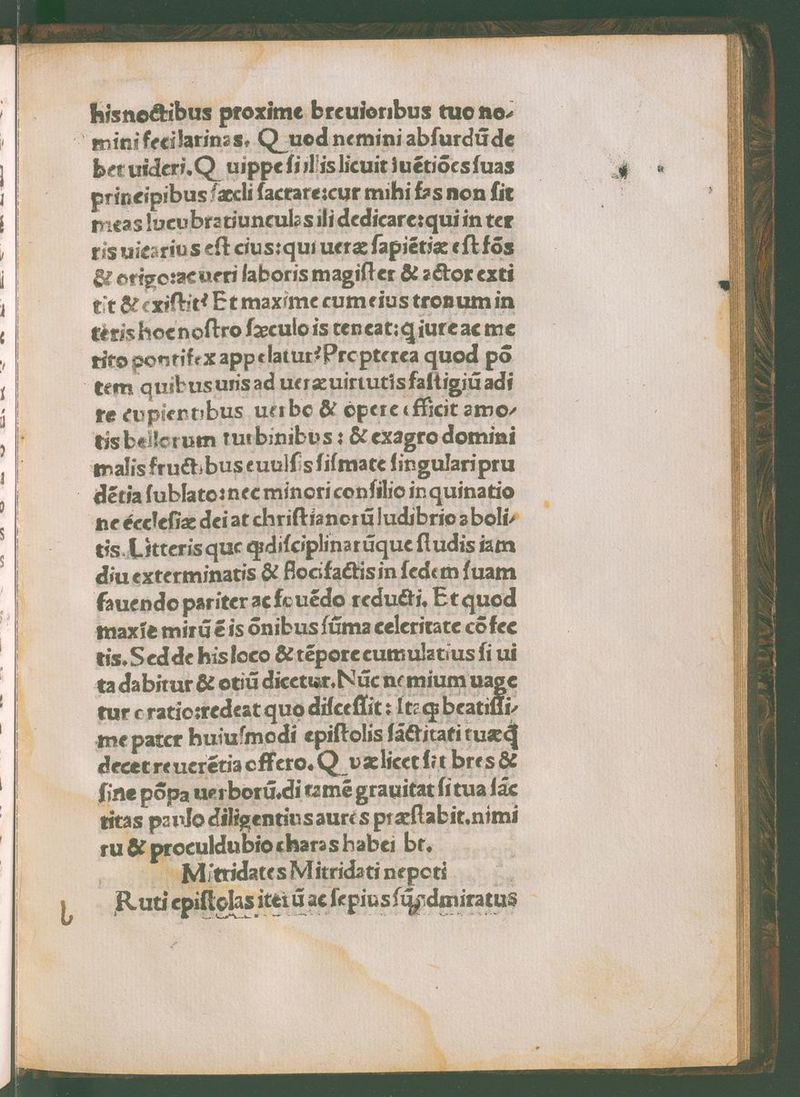 hisnoctibus proxime breuioribus tuo no⸗
minifecilarinas. Q uod nemini absurdū de
bet uideri. Q uippe si illis licuit iuētiōes suas
principibus sæcli sacrare: cur mihi fas non sit
meas lucubratiunculas ili dedicare: qui in ter
ris uicarius est eius: qui ueræ sapiētiæ est fōs
& origo: ac ueri laboris magister & actor exti
tit & existit? Et maxime cum eius tronum in
tēris hoc nostro sæculo is teneat: q iure ac me
rito pontifex appelatur? Propterea quod pō
tem quibus uris ad ueræ uirtutis fastigiū adi
re cupientibus uerbo & opere efficit amo⸗
tis bellorum turbinibus : & ex agro domini
malis fructibus euulsis fifmate singulari pru
dētia sublato: nec minori consilio inquinatio
ne ēcclesiæ dei at christianorū ludibrio aboli⸗
tis. Litterisque qdisciplinarūque studis iam
diu exterminatis & flocifactis in sedem suam
fauendo pariter ac fouēdo reducti. Et quod
maxīe mirū ē is ōnibus sūma celeritate cōfec
tis. Sed de his loco & tēpore cumulatius si ui
ta dabitur & otiū dicetur. Nūc nemium uage
tur oratio: redeat quo discessit : Itaq beatissi⸗
me pater huiusmodi epistolis sāctitati tuæ q
decet reuerētia offero. Q uæ licet sit bres &
sine pōpa uerborū. di tamē grauitat si tua sāc
titas paulo diligentius aures præstabit. nimi
ru & proculdubio charas habei bt.
Mitridates Mitridati nepoti
B ruti epistolas iterū ac sepius sū admiratus
b